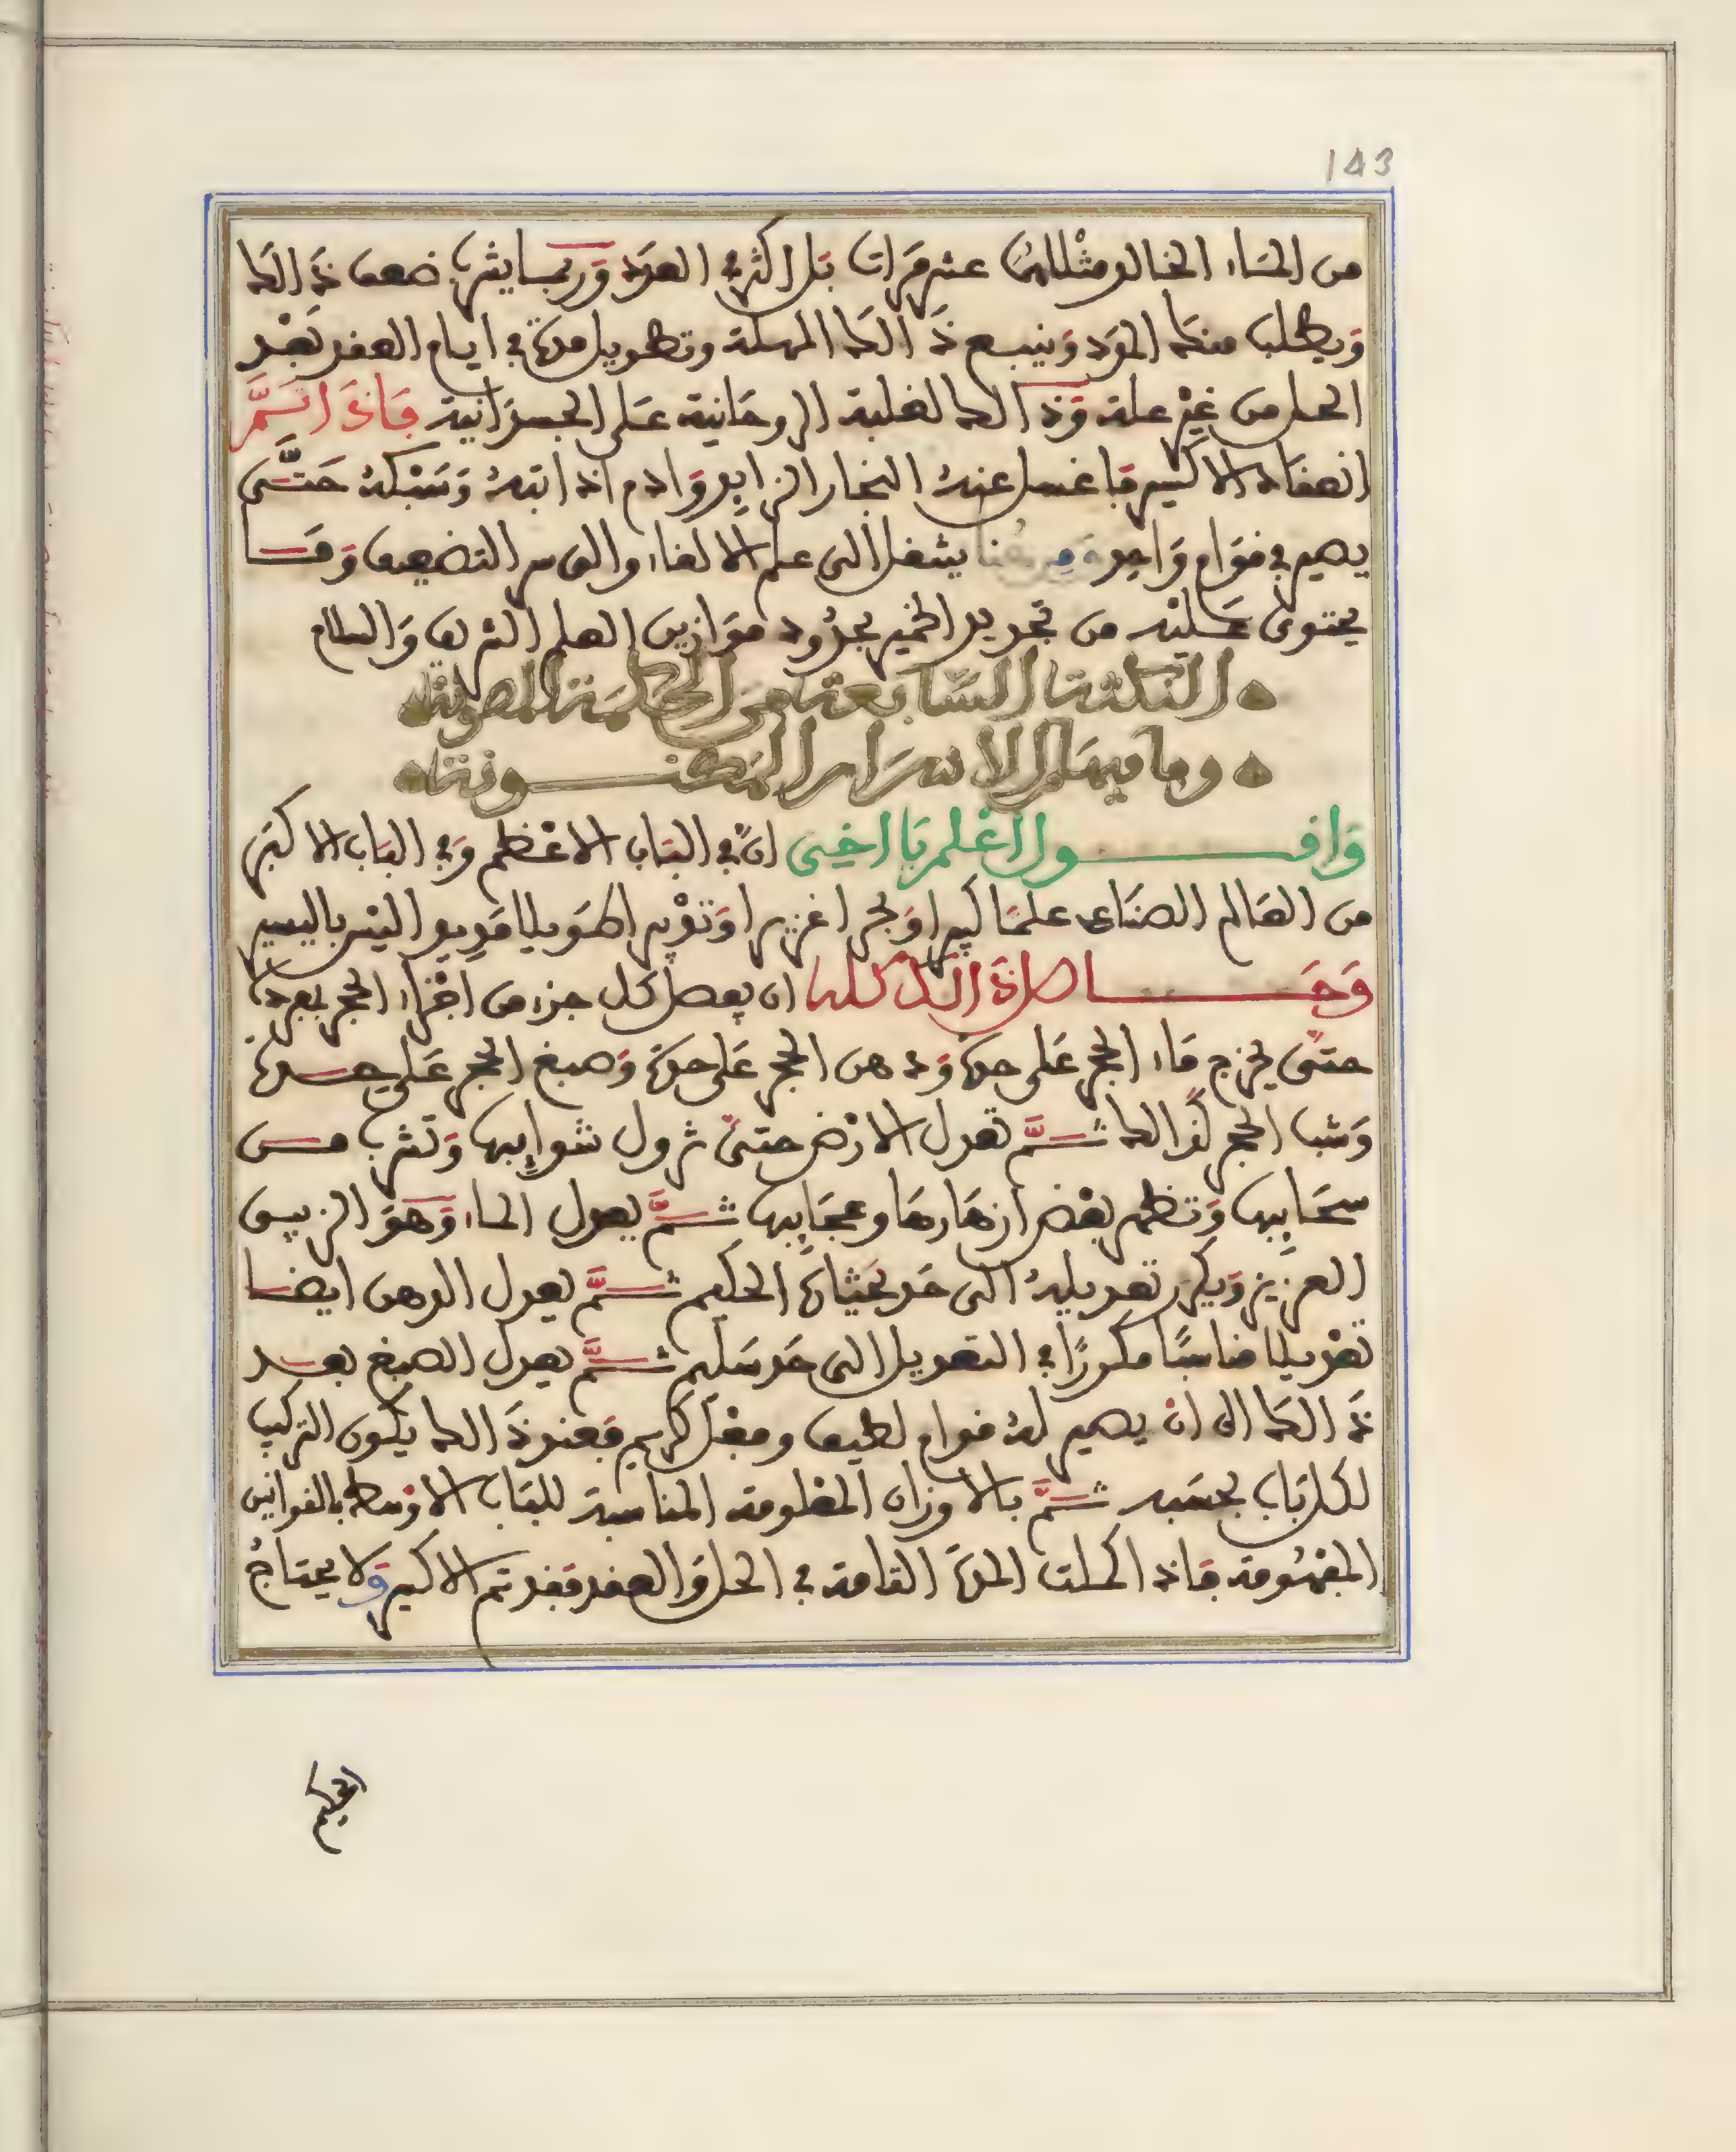 143
من الماء الخالد مثلها عشر مرات بل اكثر في العدد وربما يشرب ضعف ذالك
ويطلب منك المود وينبع ذالك المهلة وتطويل مدة في ايام العقد بعد
الحل من غير علة وذالك لغلبة الروحانية على الجسدانية فاذا تم
انعقاد الاكسير فاغسل عنه البخار الزايد وادم اذابته وسبكه حتى
يصير في قوام واحد ومن هنا ينتقل الى علم الالقاء والى سر التضعيف وما
يحتوى عليه من تجديد الخمير بحدود موازين العلم الشريف والسلام
النكتة السابعة من الحكمة المصونة
وما فيها من الاسرار المكنونة
واقول اعلم يا اخي ان في الباب الاعظم وفي الباب الاكبر
من العالم الصناعي علما كبيرا وبحرا غزيرا وتدبيرا طويلا وليس باليسير
وحاصل ذالك كله ان يفصل كل جزء من اجزاء الحجر بمفرده
حتى يخرج ماء الحجر على حدة ودهن الحجر على حدة وصبغ الحجر على حدة
وشب الحجر كذالك ثم تعدل الارض حتى تزول شوايبها وتشرب من
سحايبها وتظهر بعض ازهارها وعجايبها ثم يعدل الماء وهو الزيبق
العزيز ويكرر تعديله الى حد بحيثاة الحكيم ثم يعدل الدهن ايضا
تعديلا مناسبا مكررا في التعديل الى حد سليم ثم يعدل الصبغ بعد
ذالك الى ان يصير له قوام لطيف وفعل كريم فعند ذالك يكون التركيب
لكل باب بحسبه ثم بالاوزان المعلومة المناسبة للباب الاوسط بالقوانين
المفهومة فاذا كملت المدة التامة في الحل والعقد فقد تم الاكسير ولا يحتاج
الحكيم